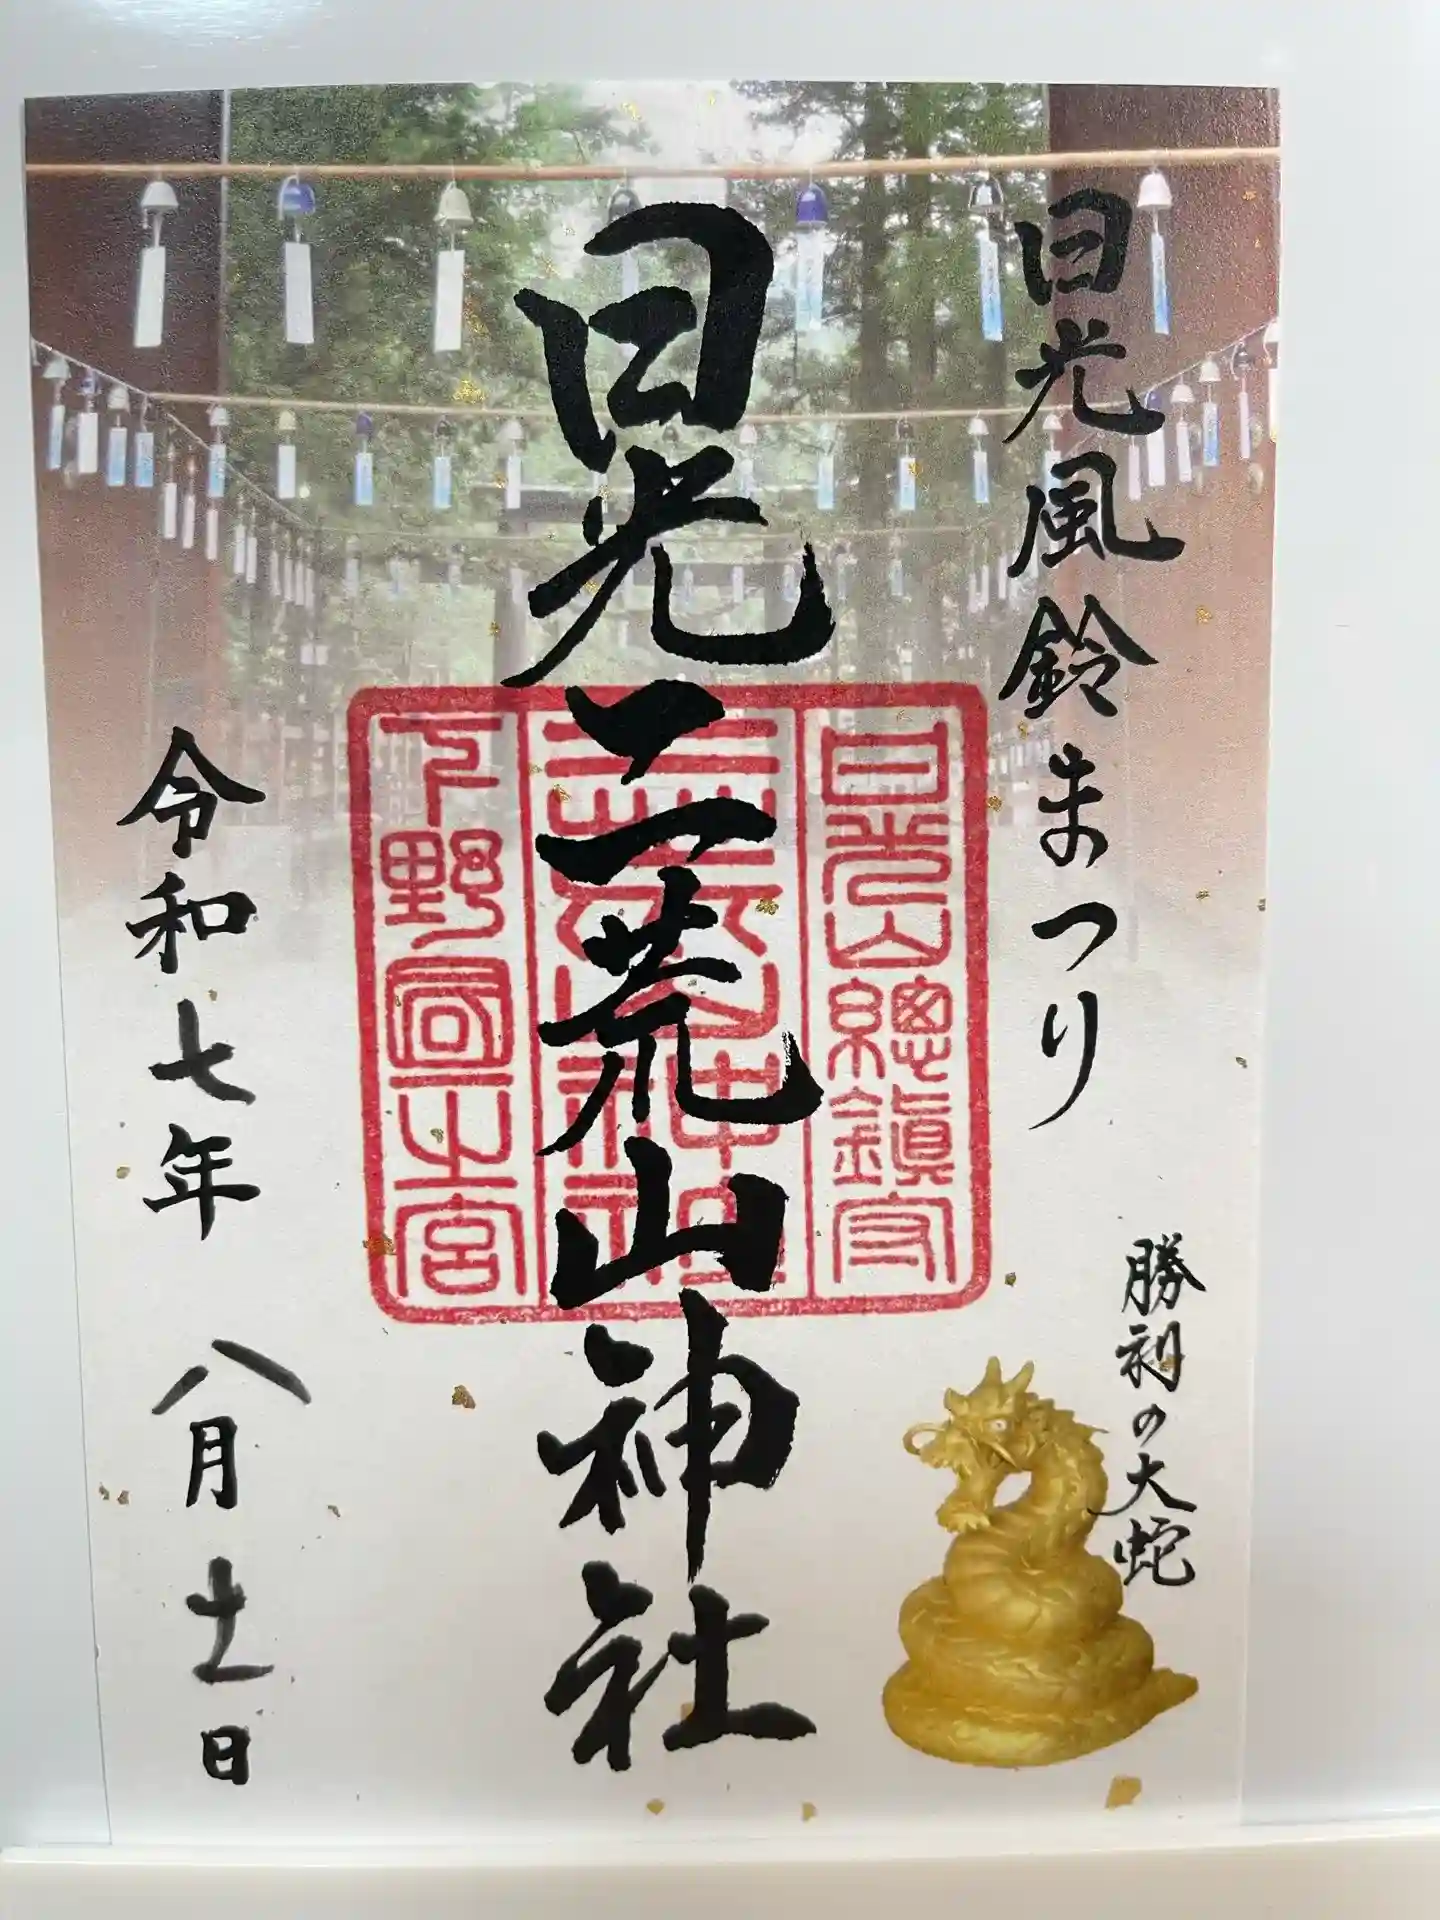 日光風鈴まつり
勝利の大蛇
日光二荒山神社
日光山總鎮守
下野國一之宮
令和七年 八月十一日